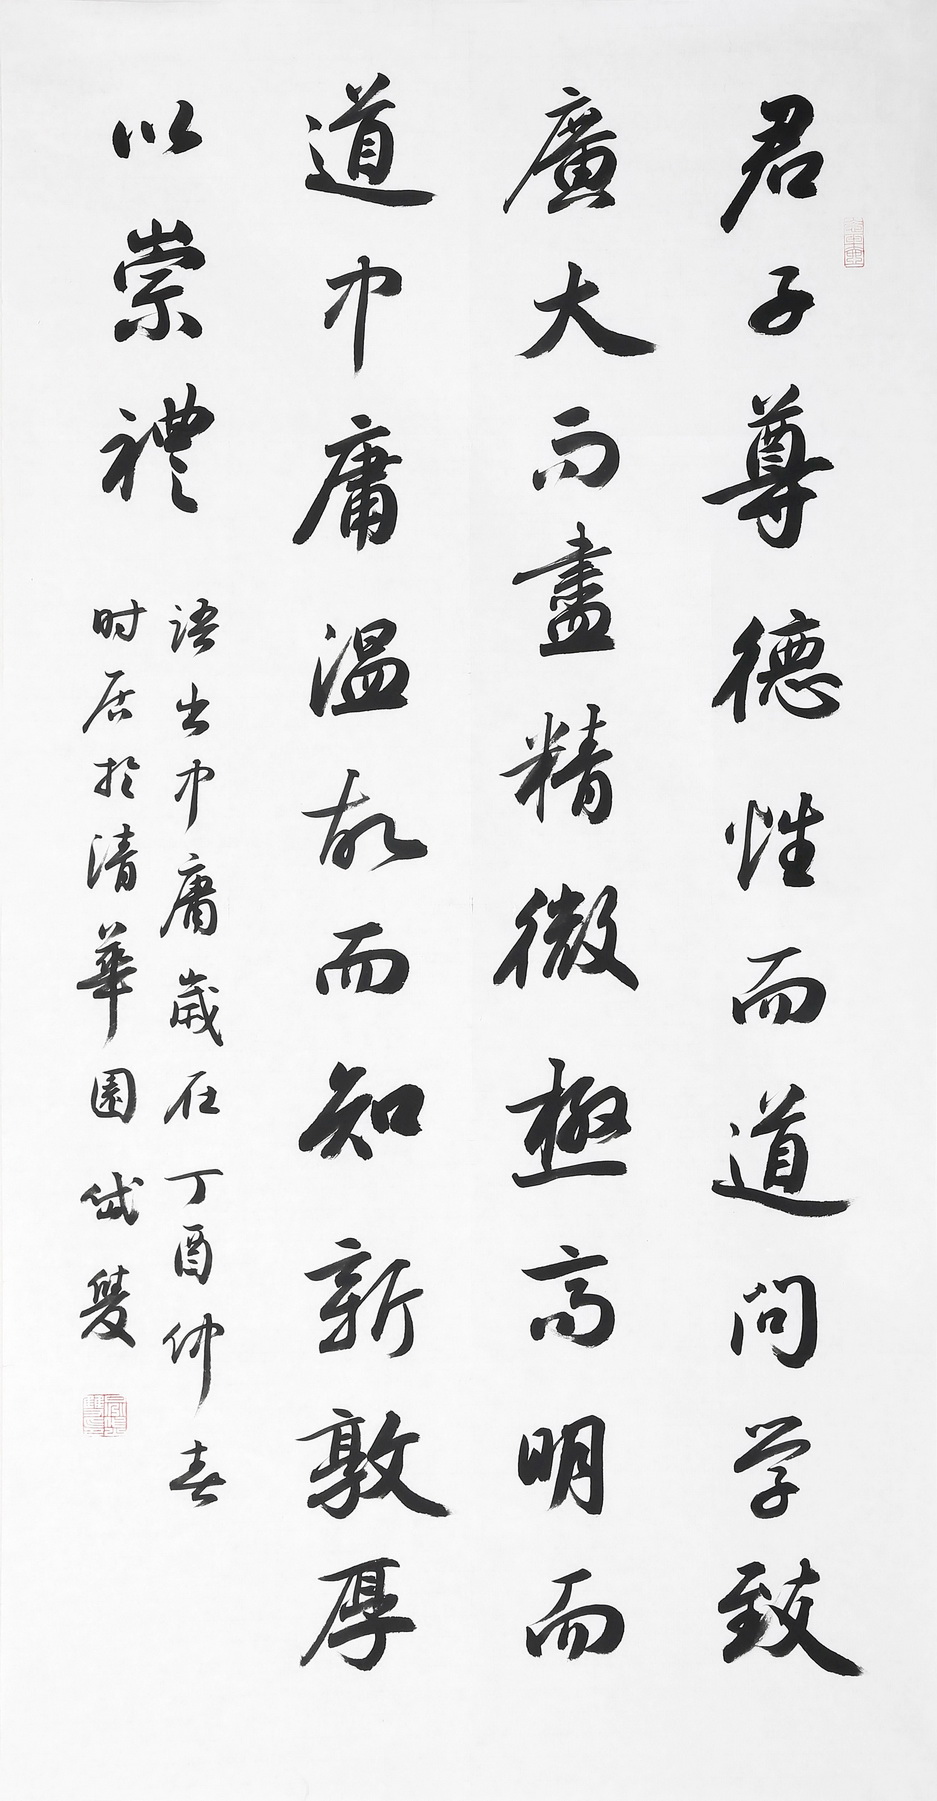 君子尊德性而道问学致
廣大而盡精微極高明而
道中庸温故而知新敦厚
以崇禮
语出中庸歲在丁酉仲春
时居於清華園岱雙